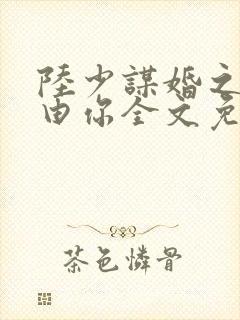 陸少謀婚之
由你全文免
茶色憐骨